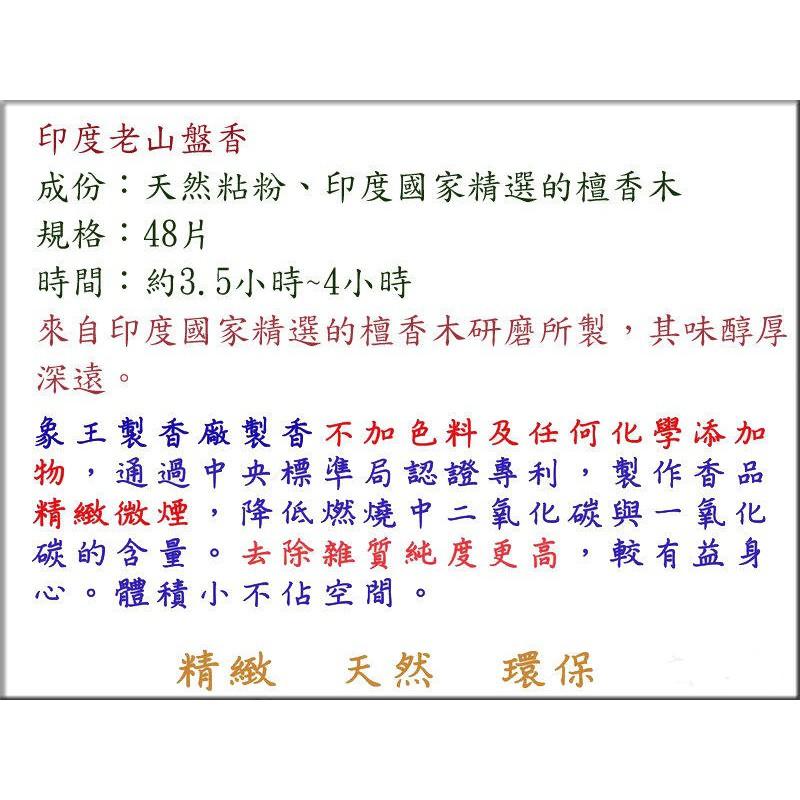 印度老山盤香
成份：天然粘粉、印度國家精選的檀香木
規格：48片
時間：約3.5小時~4小時
來自印度國家精選的檀香木研磨所製，其味醇厚
深遠。
象王製香廠製香不加色料及任何化學添加
物，通過中央標準局認證專利，製作香品
精緻微煙，降低燃燒中二氧化碳與一氧化
碳的含量。去除雜質純度更高，較有益身
心。體積小不佔空間。
精緻 天然 環保